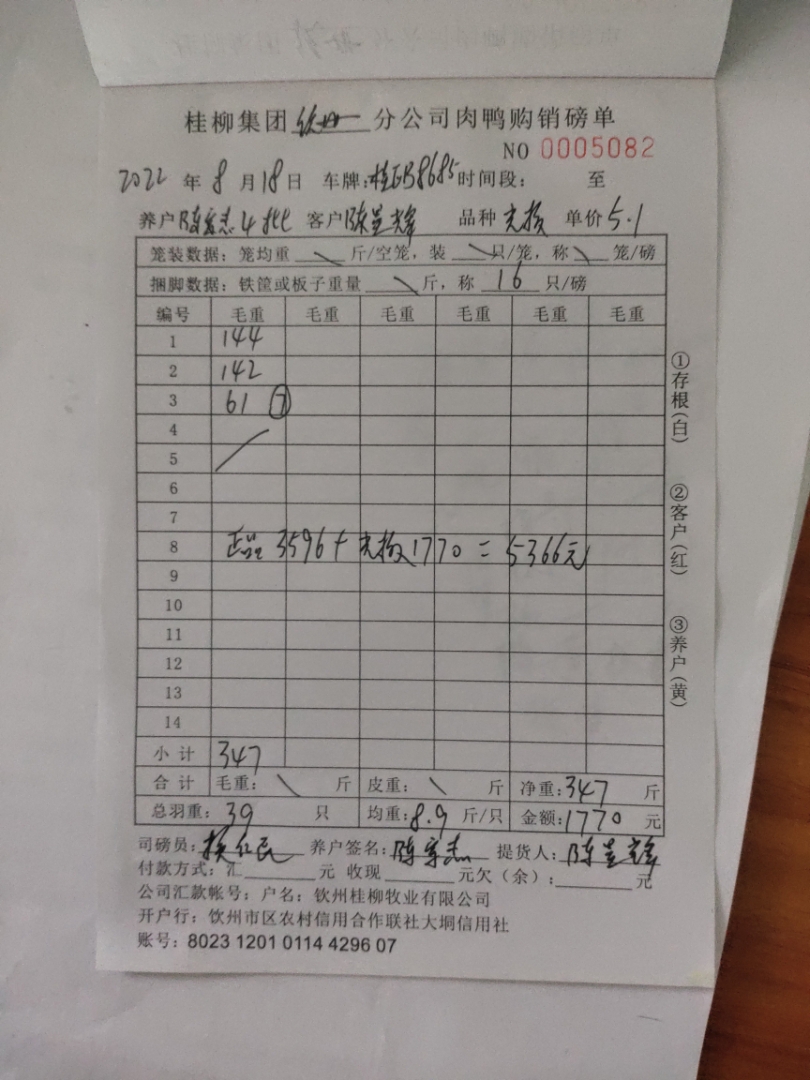 桂柳集团钦州分公司肉鸭购销磅单
NO 0005082
2022年8月18日 车牌:桂EB8685时间段: 至
养户陈富志4批 客户陈呈辉 品种 单价5.1
笼装数据:笼均重 \ 斤/空笼,装 \ 只/笼,称 \ 笼/磅
捆脚数据:铁筐或板子重量 \ 斤,称 16 只/磅
编号 毛重 毛重 毛重 毛重 毛重 毛重
1 144
2 142
3 61 ⑦
4
5
6
7
8 正品 3596+ 1770=5366元
9
10
11
12
13
14
小计 347
合计 毛重: \ 斤 皮重: \ 斤 净重:347 斤
总羽重:39 只 均重:8.9斤/只 金额:1770 元
司磅员: 养户签名:陈富志 提货人:陈呈辉
付款方式:汇 元 收现 元欠(余): 元
公司汇款帐号:户名:钦州桂柳牧业有限公司
开户行:钦州市区农村信用合作联社大垌信用社
账号:8023 1201 0114 4296 07
①存根(白)
②客户(红)
③养户(黄)